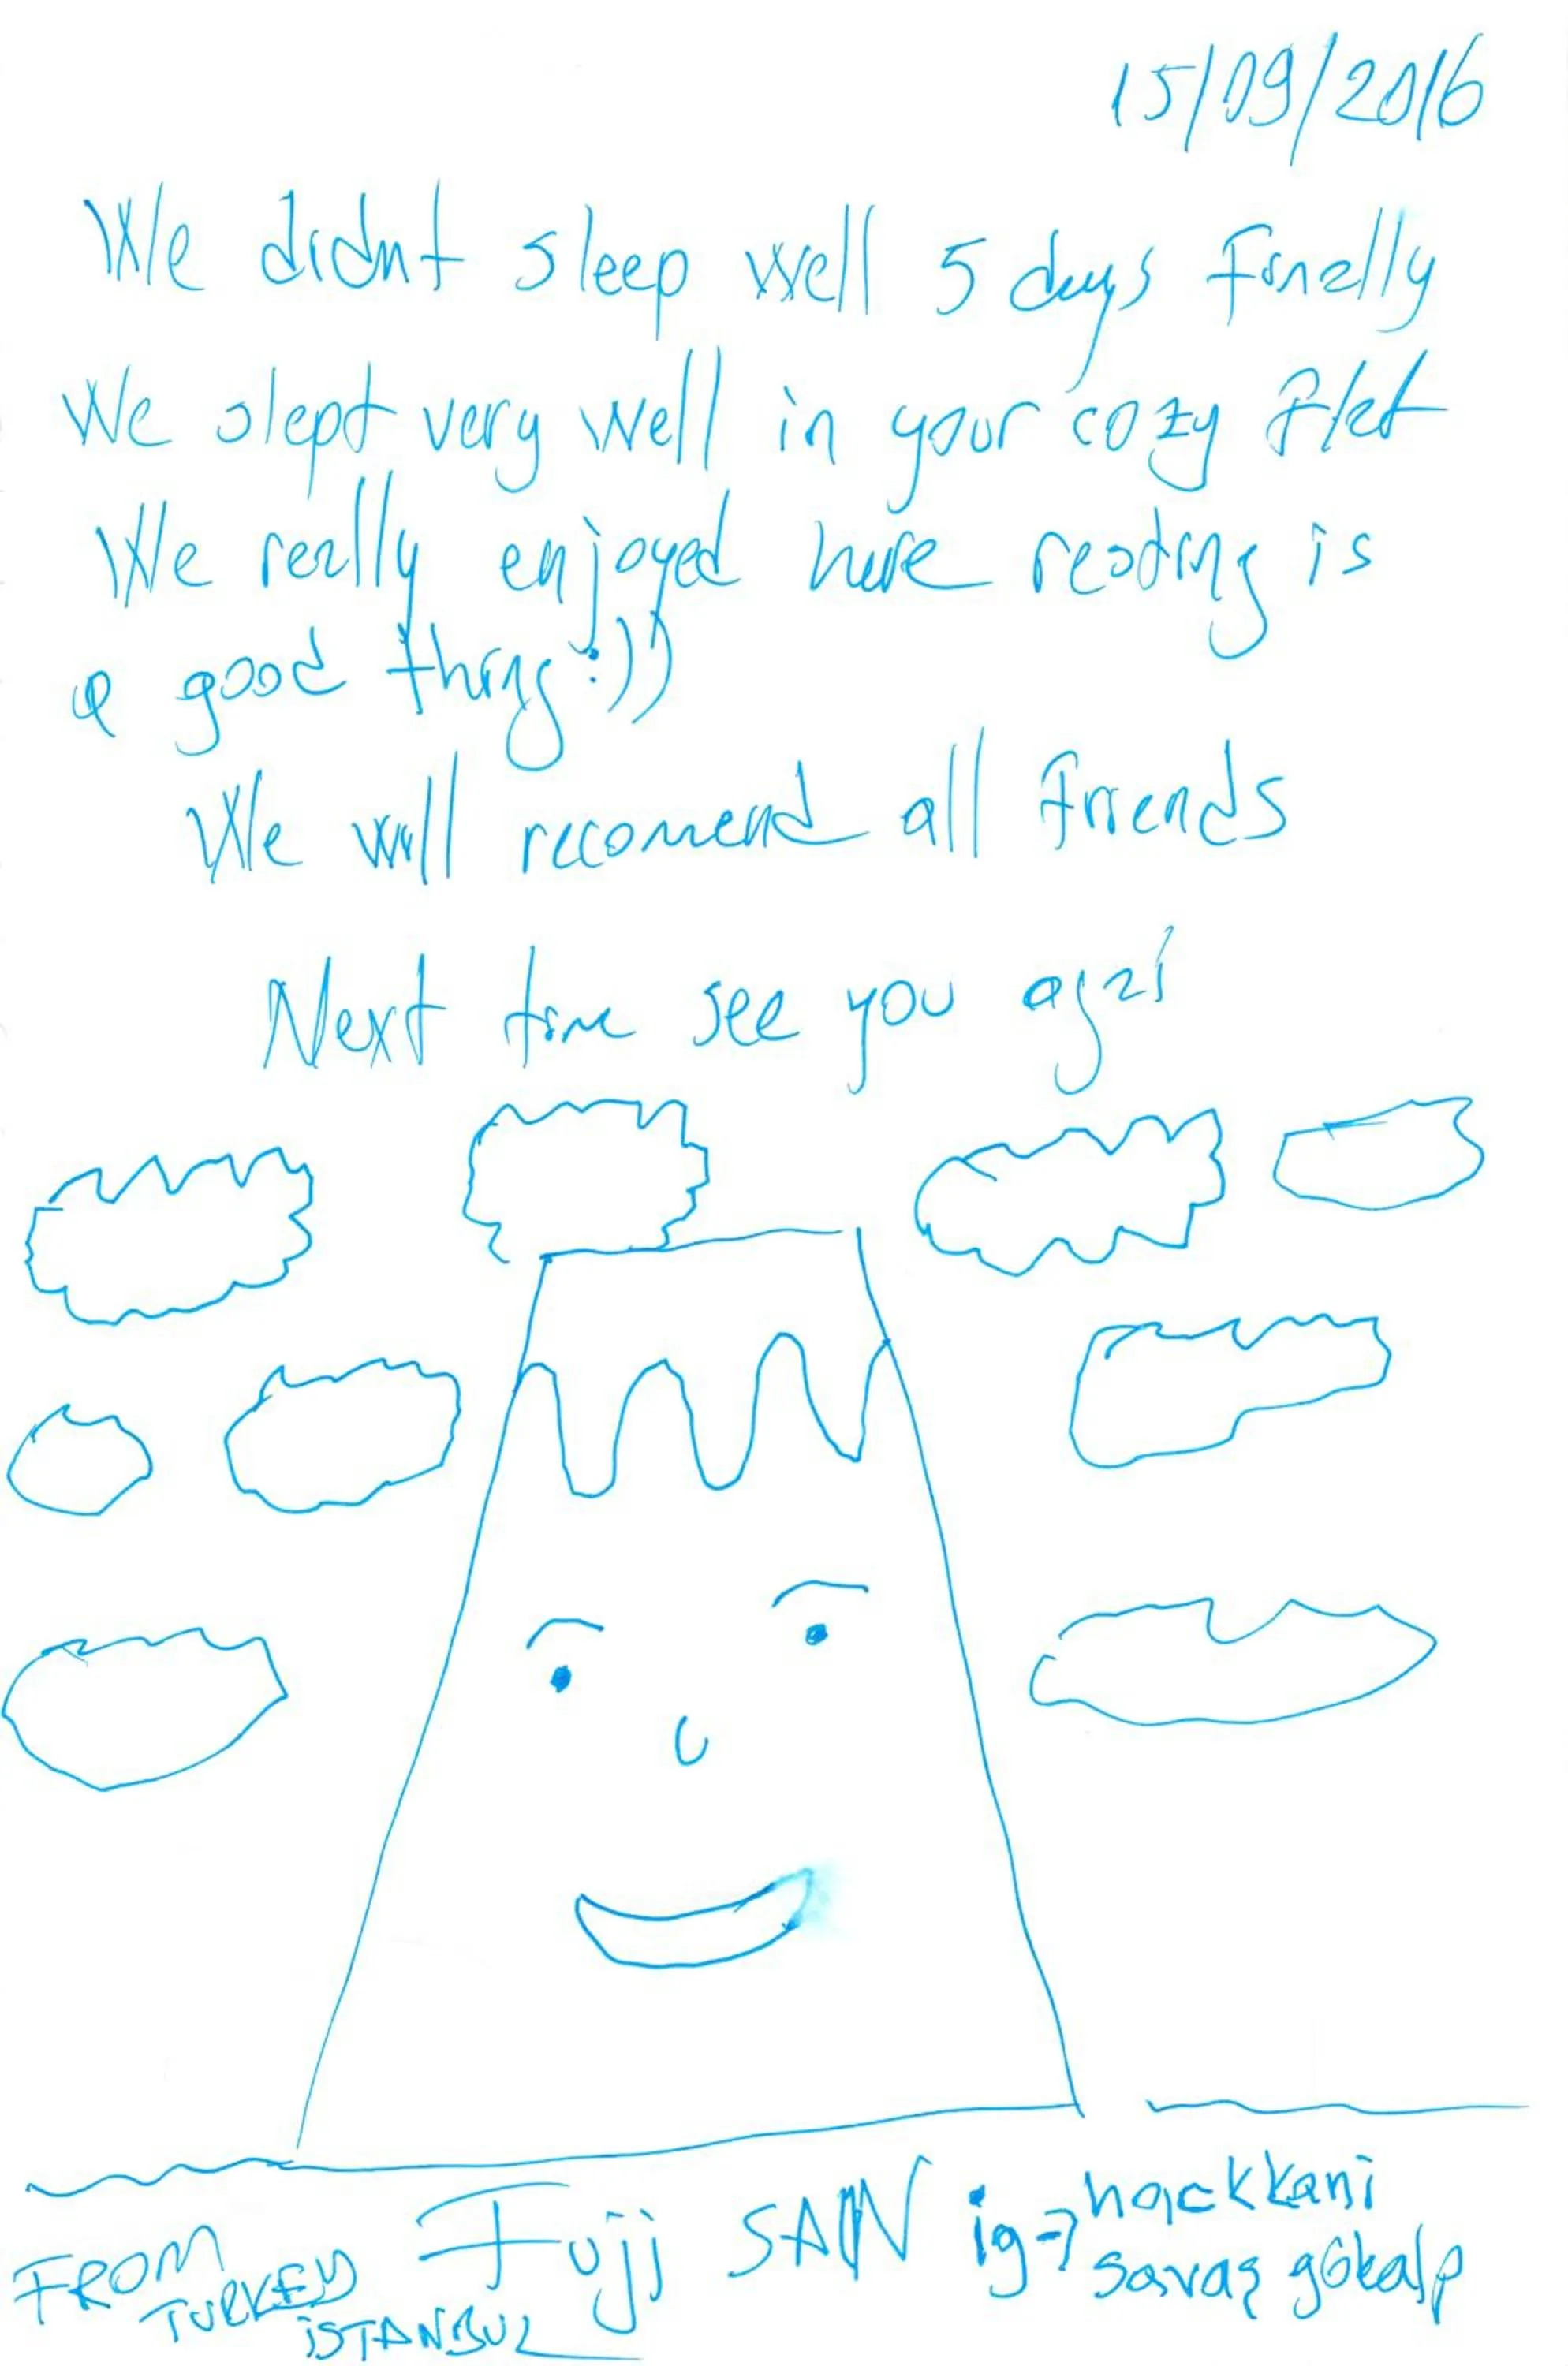 15/09/2016
We didnt sleep well 5 days finally
We slept very well in your cozy flat
We really enjoyed here reading is
a good thing :))
We will recomend all friends
Next time see you agai
Fuji SAN
FROM
TURKEY
iSTANBUL
ig→
savaş gökalp